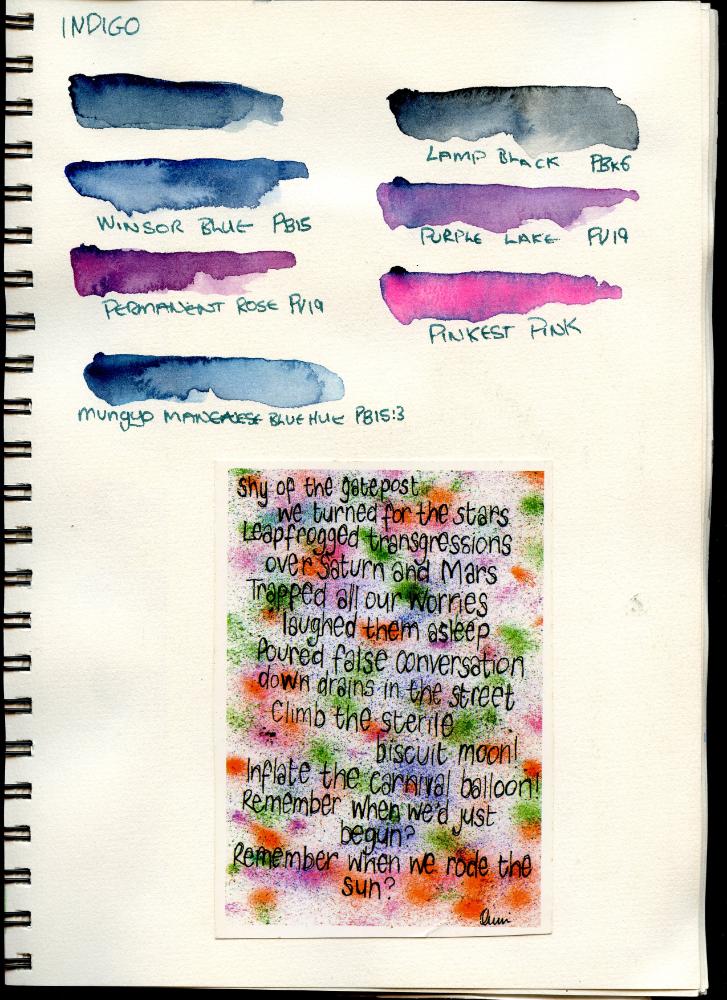 INDIGO
LAMP BLACK PBK6
WINSOR BLUE PB15
PURPLE LAKE PV19
PERMANENT ROSE PV19
PINKEST PINK
mungyo MANGANESE BLUE HUE PB15:3
Shy of the gatepost
we turned for the stars
Leapfrogged transgressions
over Saturn and Mars
Trapped all our worries
laughed them asleep
Poured false conversation
down drains in the street
Climb the sterile
biscuit moon!
Inflate the carnival balloon!
Remember when we'd just
begun?
Remember when we rode the
sun?